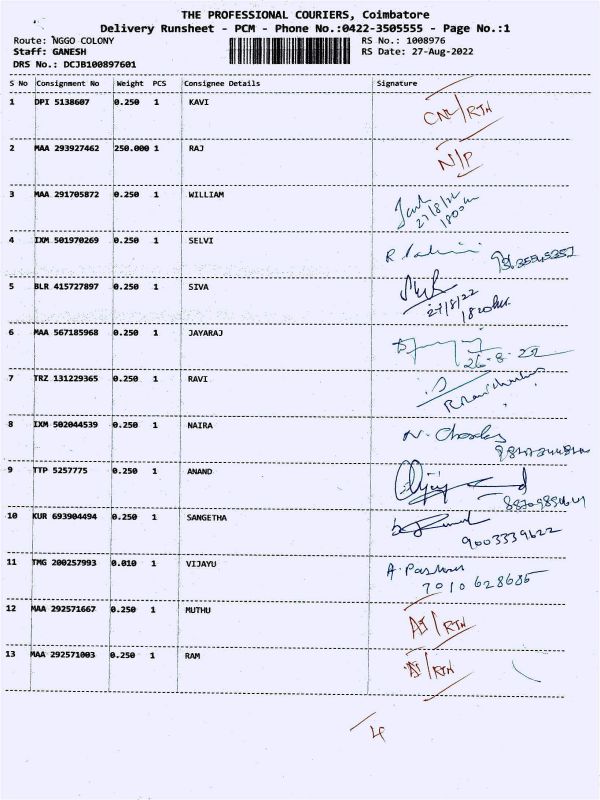 THE PROFESSIONAL COURIERS, Coimbatore
Delivery Runsheet - PCM - Phone No.:0422-3505555 - Page No.:1
Route: NGGO COLONY RS No.: 1008976
Staff: GANESH RS Date: 27-Aug-2022
DRS No.: DCJB100897601
S No Consignment No Weight PCS Consignee Details Signature
1 DPI 5138607 0.250 1 KAVI CNL/RTN
2 MAA 293927462 250.000 1 RAJ N/P
3 MAA 291705872 0.250 1 WILLIAM
27/8/22
4 IXM 501970269 0.250 1 SELVI
5 BLR 415727897 0.250 1 SIVA
27/8/22
6 MAA 567185968 0.250 1 JAYARAJ
26-8-22
7 TRZ 131229365 0.250 1 RAVI
8 IXM 502044539 0.250 1 NAIRA
9 TTP 5257775 0.250 1 ANAND
10 KUR 693904494 0.250 1 SANGETHA
9003339622
11 TMG 200257993 0.010 1 VIJAYU
7010628685
12 MAA 292571667 0.250 1 MUTHU /RTN
13 MAA 292571003 0.250 1 RAM /RTN
4